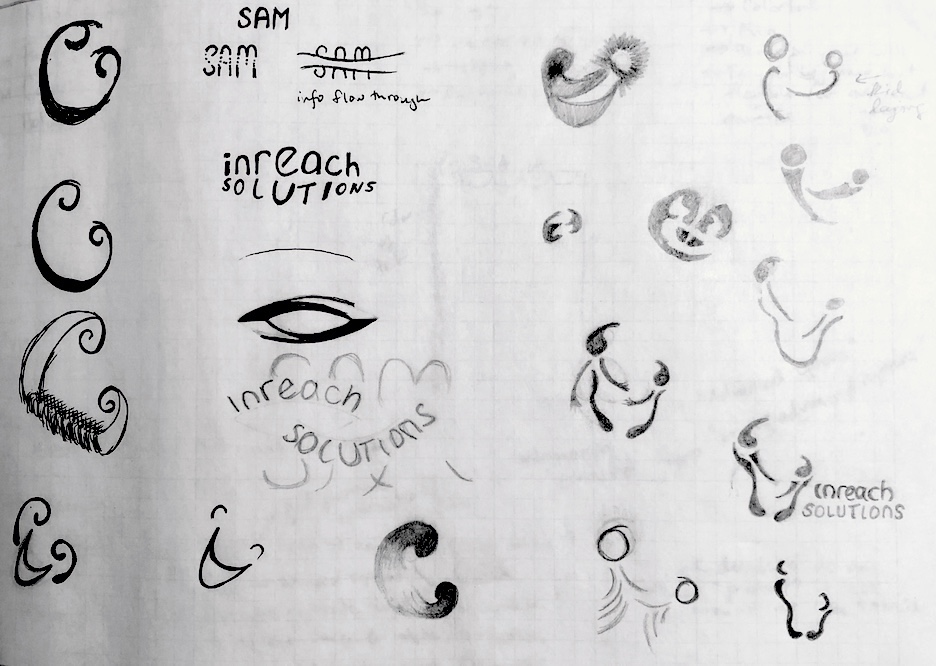 SAM
SAM
SAM
info flow through
inreach
SOLUTIONS
inreach
SOLUTIONS
inreach
SOLUTIONS